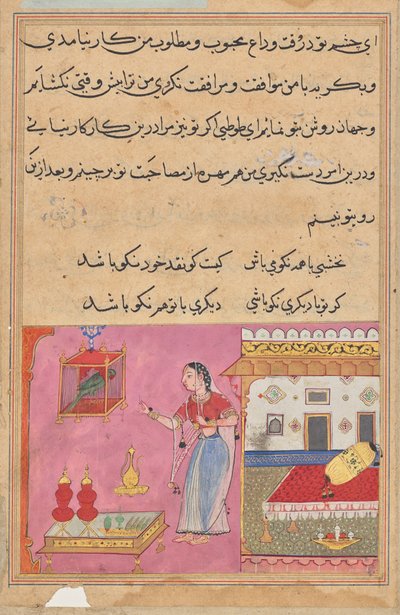 ای چشم تو در وقت وداع محبوب و مطلوب من کار نیامدی
و بکریه با من موافقت و مرافقت نکردی من ترا پیش وقتی نکشایم
و جهان روشن بتو ننمایم ای طوطی اکر تو نیز مرا درین کار کار نیائی
و درین امر دست نکیری من هم مهره از مصاحبت تو بر چینم و بعد ازین
روی تو نبینم
نخشبی با همه نکو می باش کیست کو نقد خود نکو باشد
کر تو با دیکری نکو باشی دیکری با تو هم نکو باشد